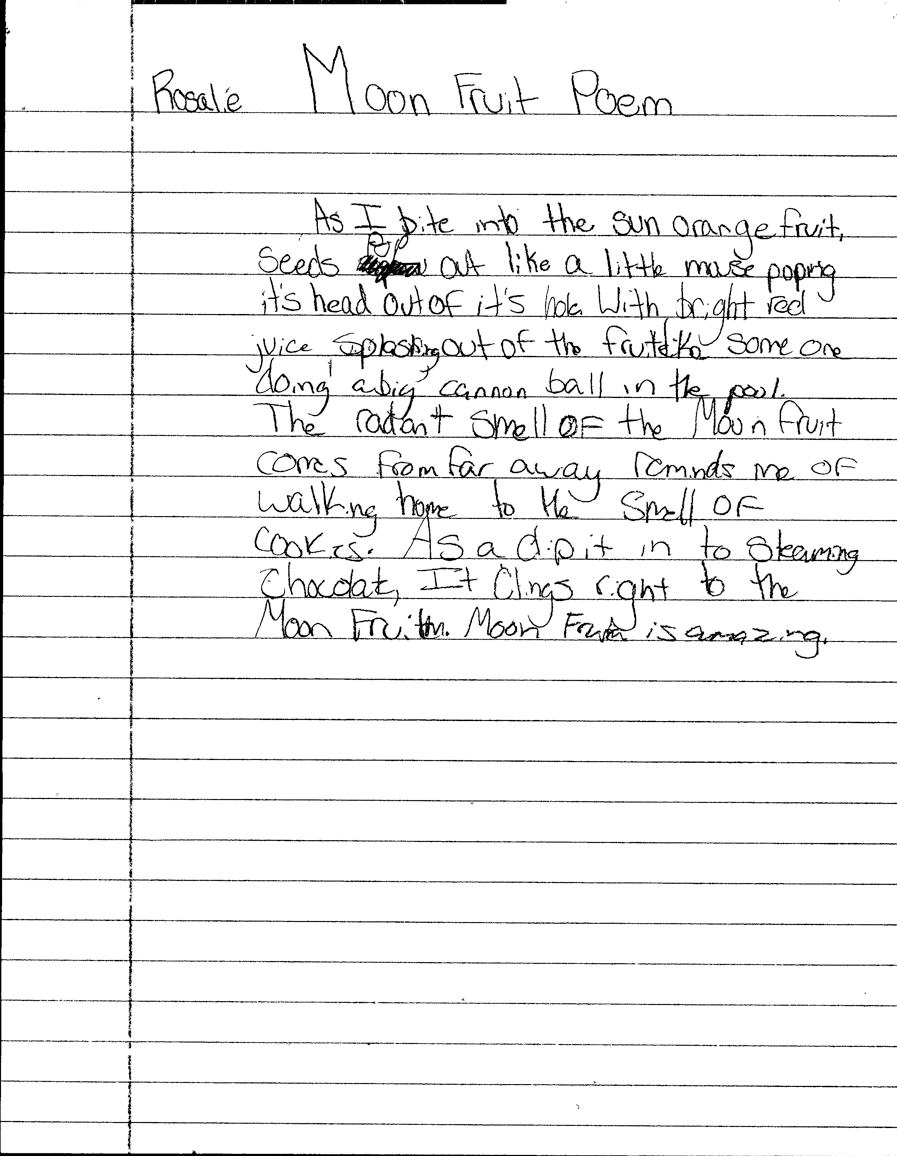 Rosalie Moon Fruit Poem
As I bite into the sun orange fruit,
Seeds Pop out like a little mouse poping
it's head out of it's hole. With bright red
juice splashing out of the fruit like some one
doing a big cannon ball in the pool.
The radant smell of the Moon fruit
comes from far away remnds me of
walking home to the smell of
cookies. As a dip it in to steaming
Chocolat, It Clings right to the
Moon Fruit. Moon Fruit is amazing.